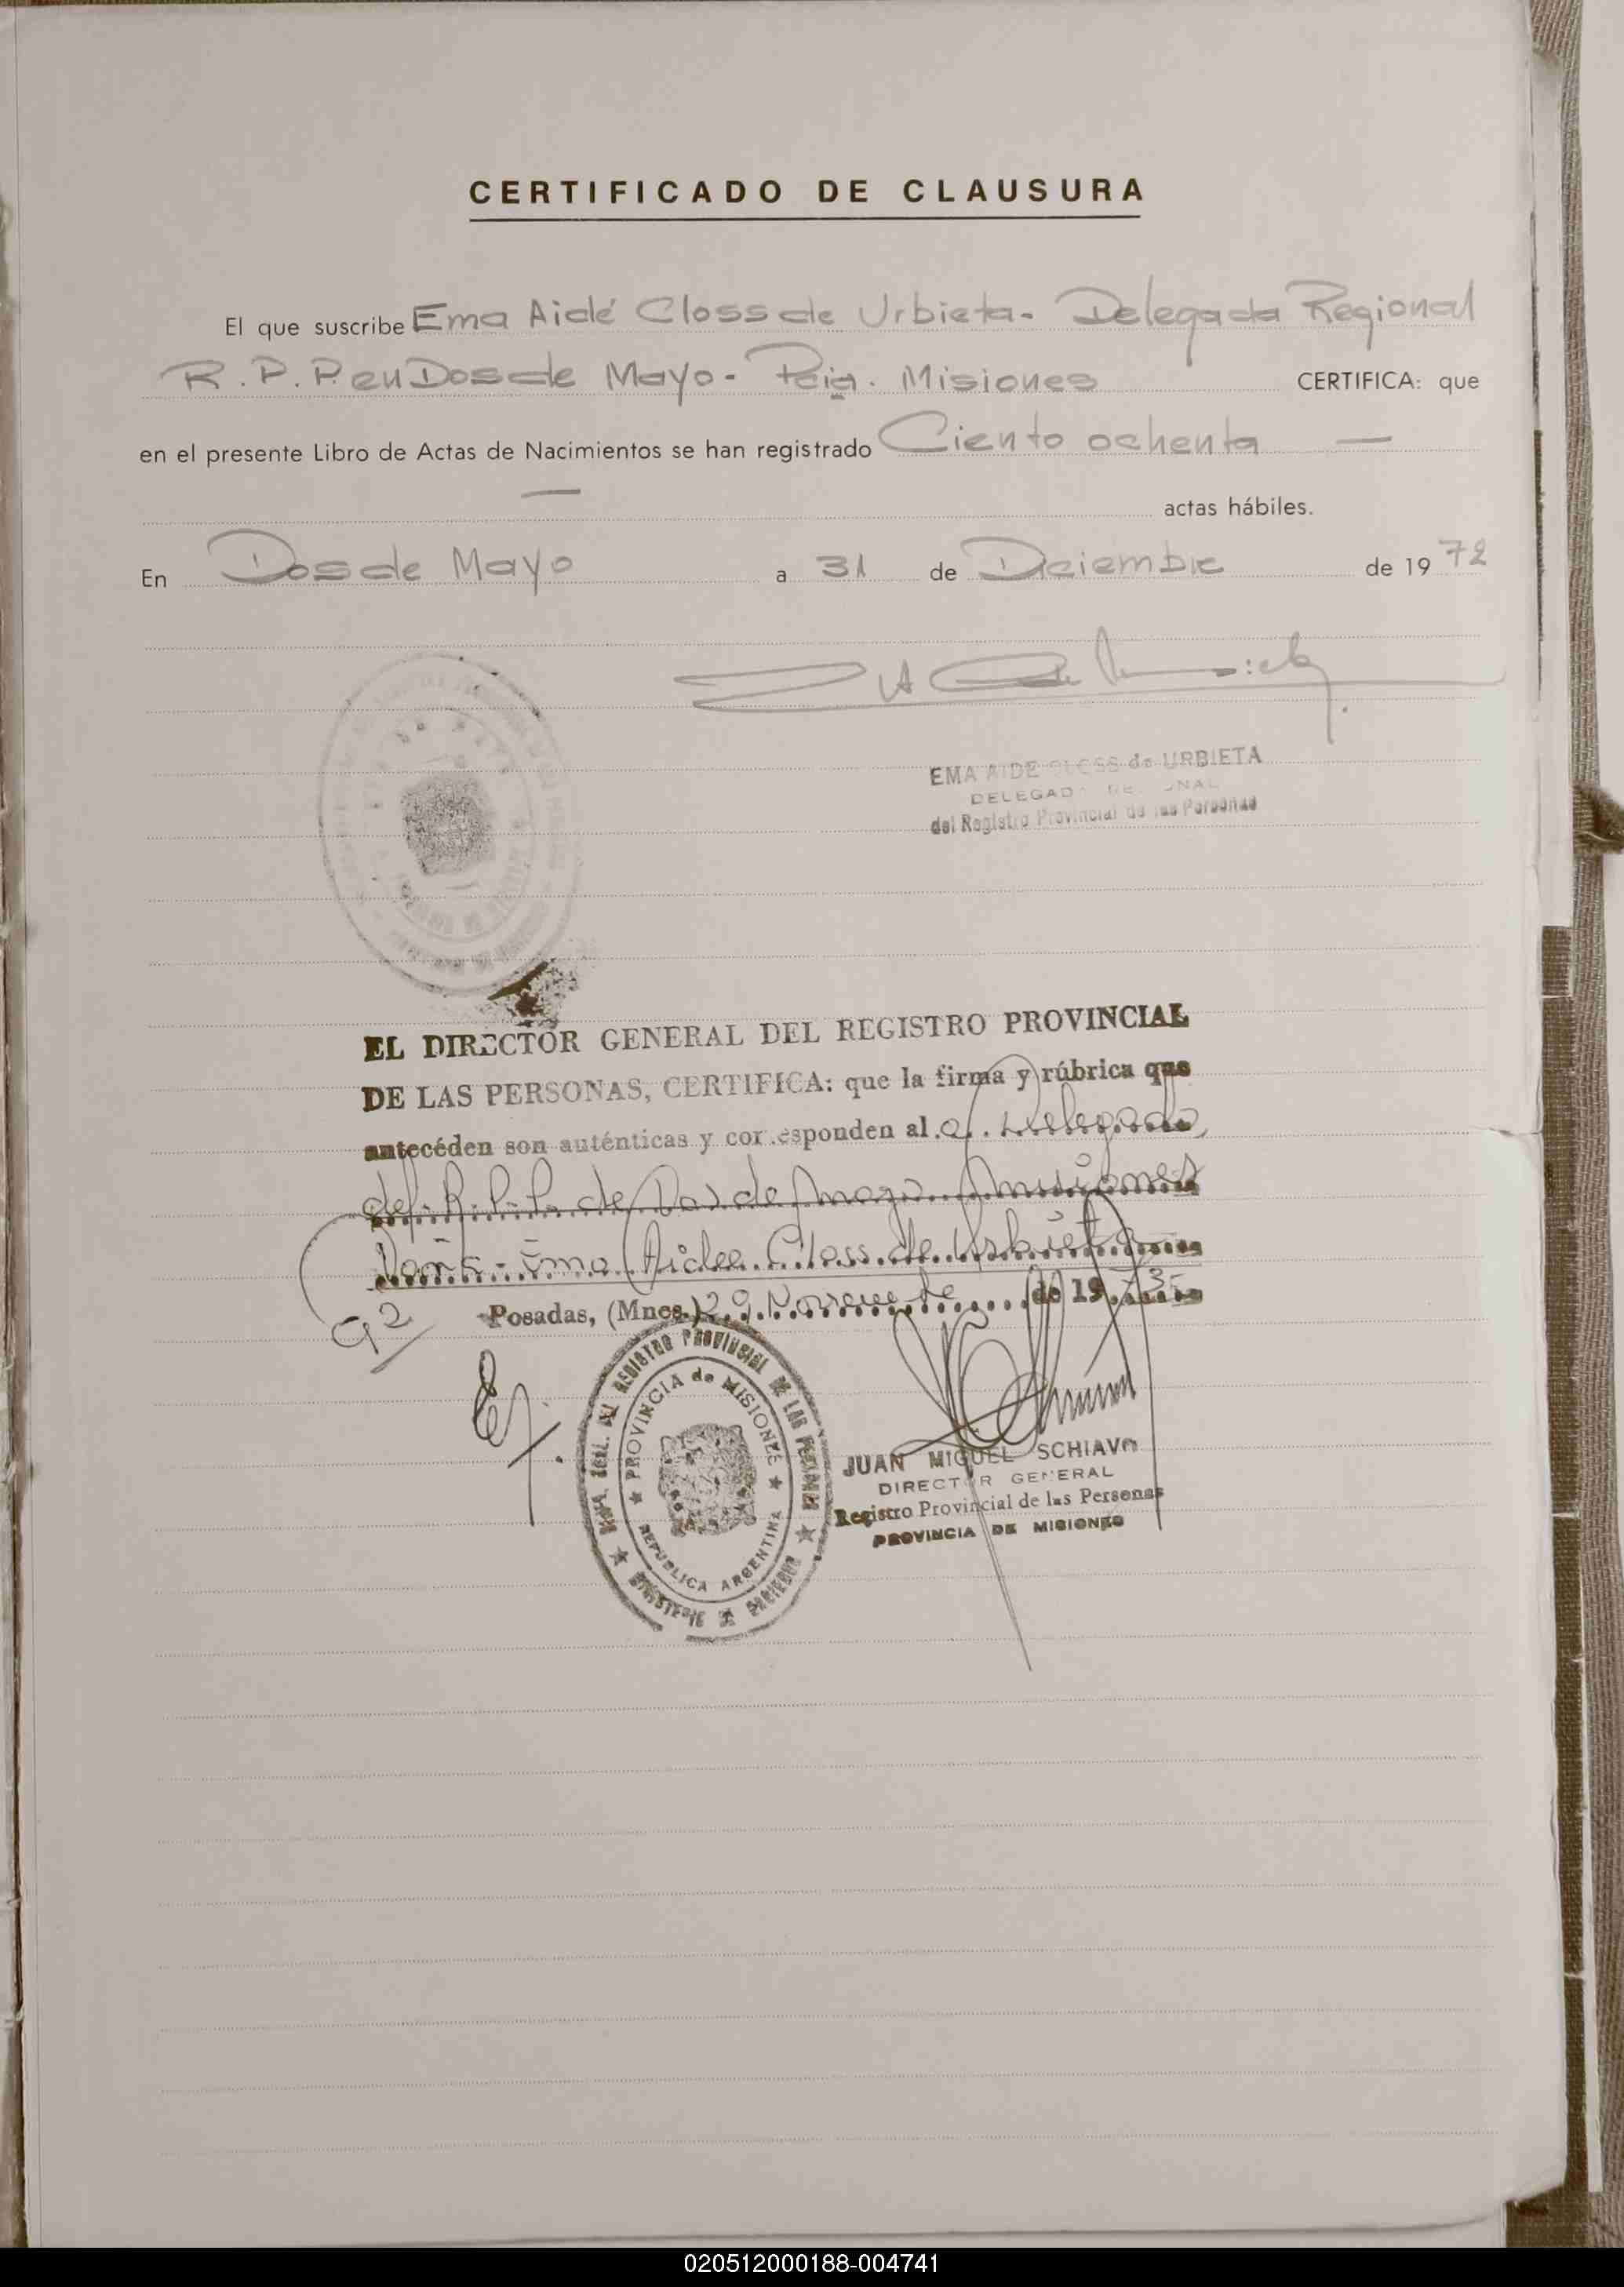 CERTIFICADO DE CLAUSURA
El que suscribe Ema Aidé Closs de Urbieta. Delegada Regional
R. P. P. en Dos de Mayo. Pcia. Misiones CERTIFICA: que
en el presente Libro de Actas de Nacimientos se han registrado Ciento ochenta —
— actas hábiles.
En Dos de Mayo a 31 de Diciembre de 1972
EMA AIDE CLOSS de URBIETA
DELEGADA REGIONAL
del Registro Provincial de las Personas
EL DIRECTOR GENERAL DEL REGISTRO PROVINCIAL
DE LAS PERSONAS, CERTIFICA: que la firma y rúbrica que
antecéden son auténticas y corresponden al a. Delegada
del R. P. P. de Dos de Mayo Misiones
Doña Ema Aidee Closs de Urbieta
Posadas, (Mnes.) 29 Noviembre de 1973
G2
REGISTRO PROVINCIAL DE LAS PERSONAS
PROVINCIA de MISIONES
REPUBLICA ARGENTINA
MINISTERIO DE GOBIERNO
JUAN MIGUEL SCHIAVO
DIRECTOR GENERAL
Registro Provincial de las Personas
PROVINCIA DE MISIONES
020512000188-004741